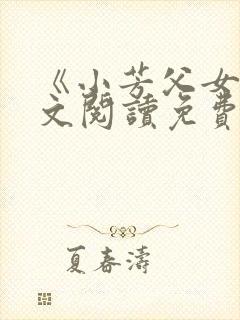 《小芳父女
文閱讀免費
夏春濤